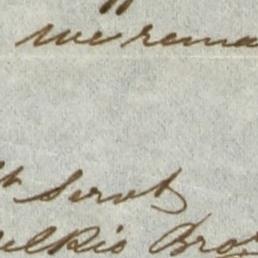 we rema
t Servts
elkis Bros